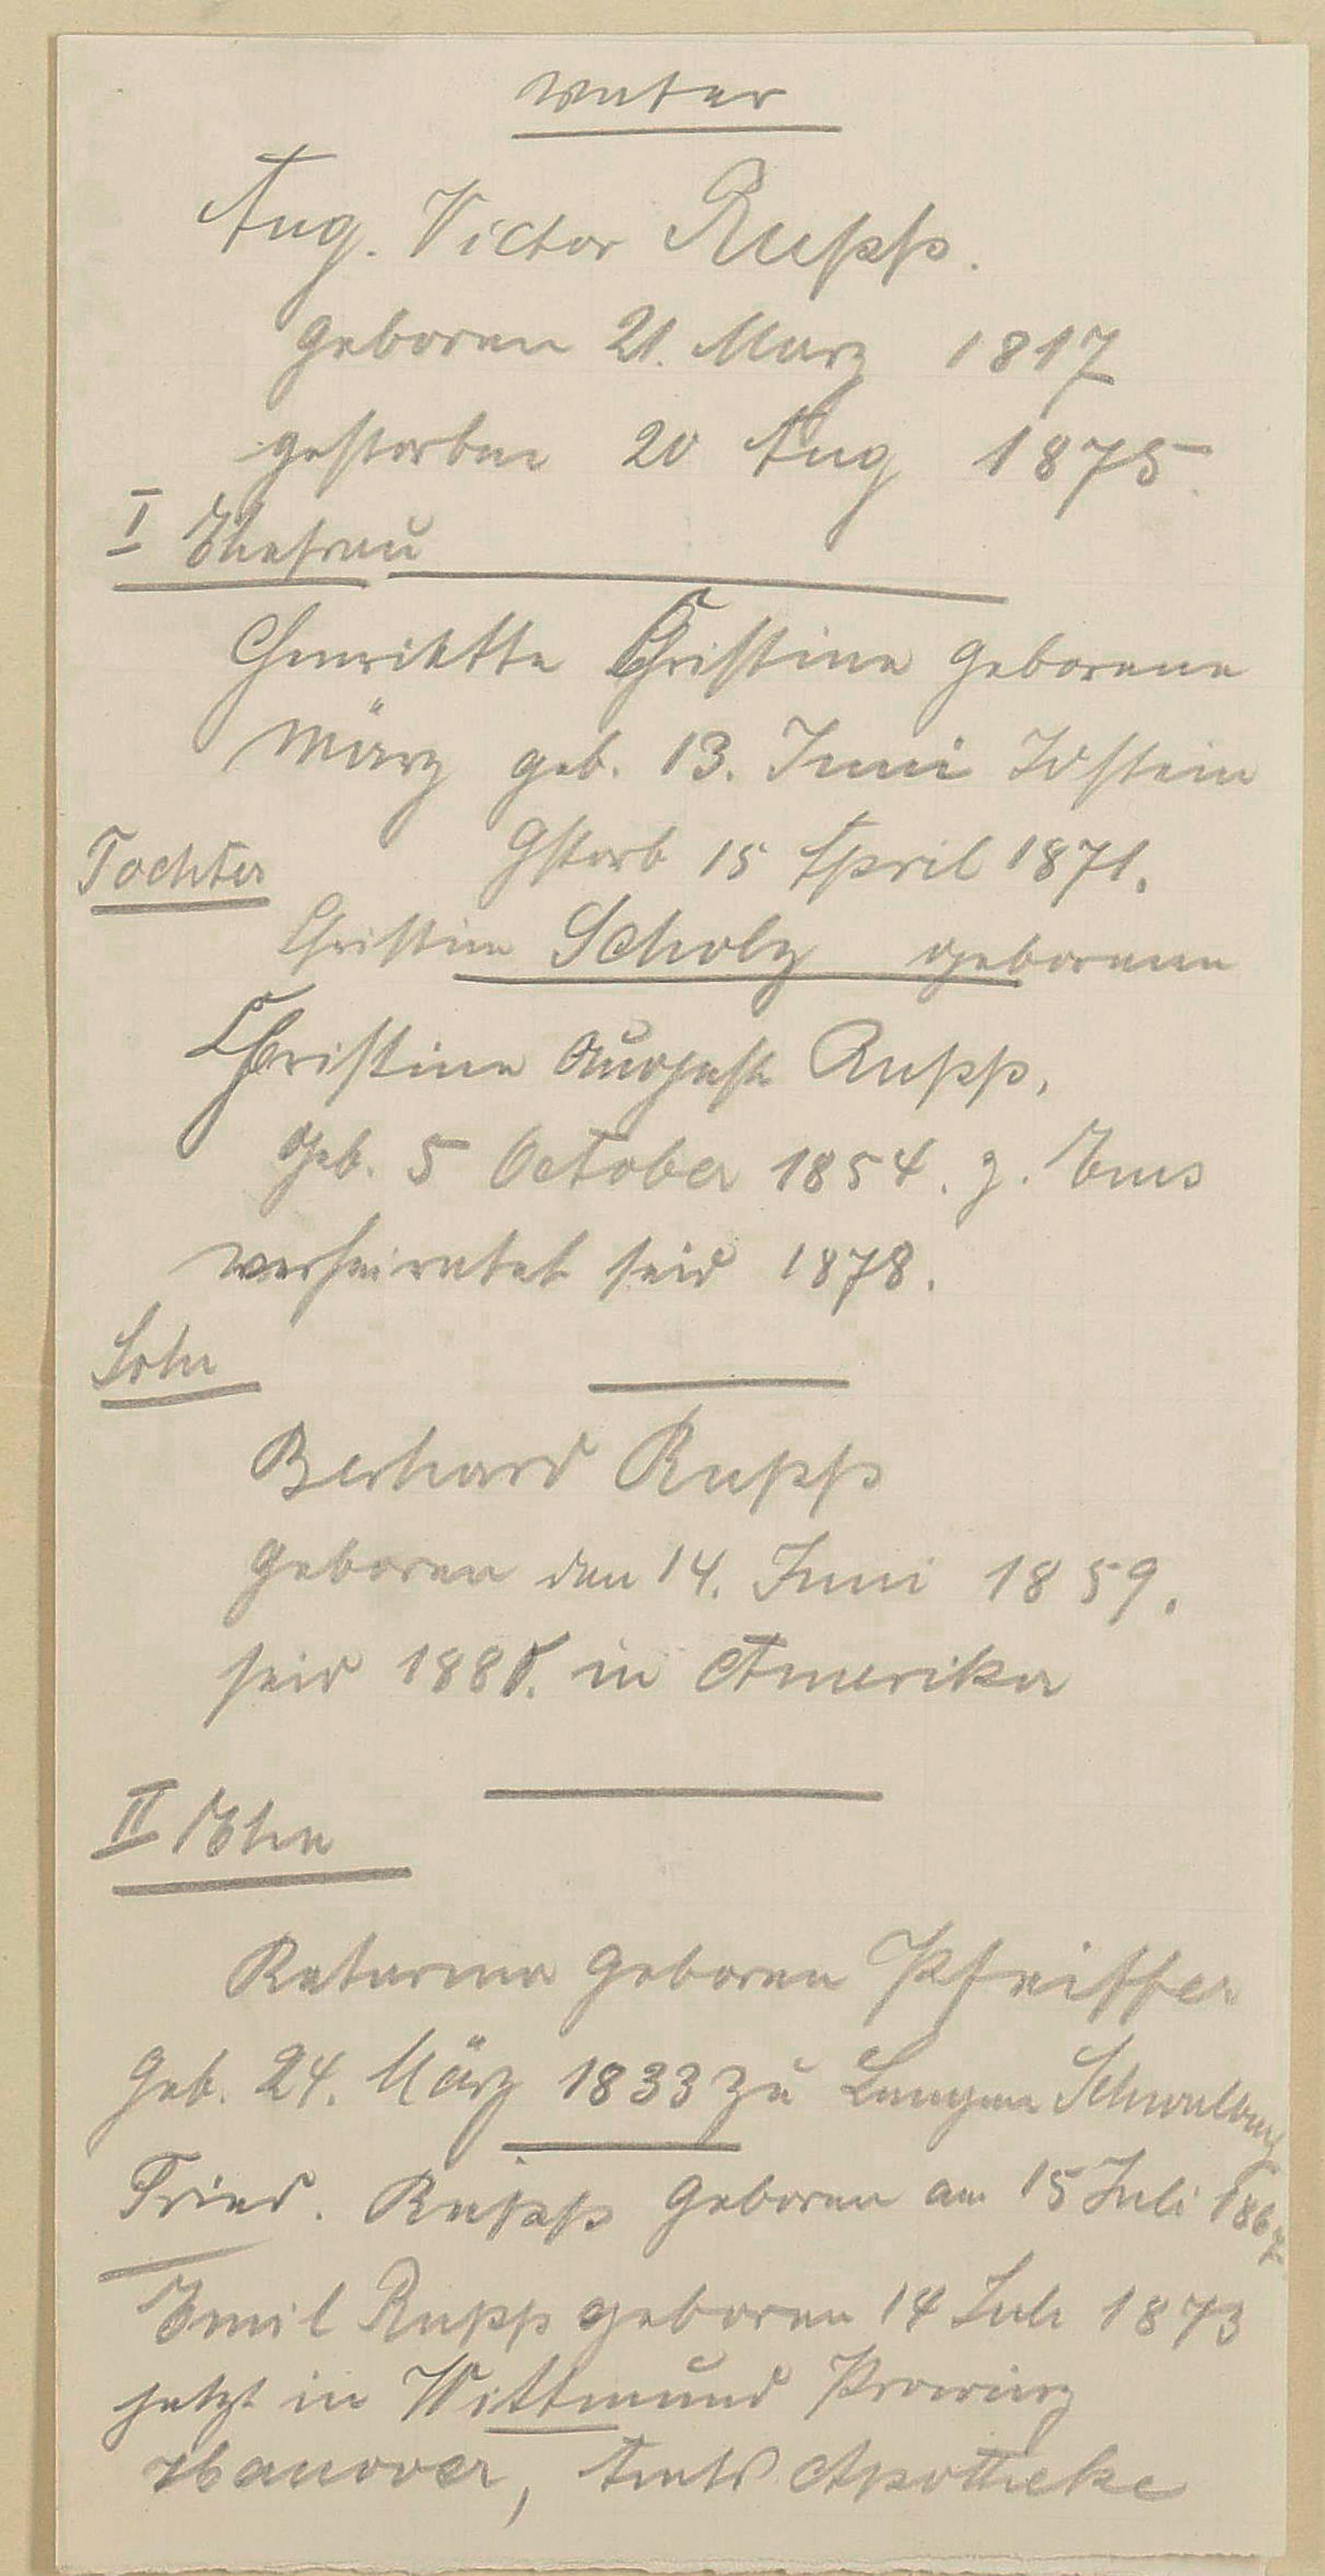 Vater
Aug. Victor Rupp.
geboren 21. Marz 1817
gestorben 20 Aug 1875
I Ehefrau
Henriette Christine geborene
März geb. 13. Juni Idstein
Gstorb 15 April 1871.
Tochter
Christine Scholz geborene
Christine August Rupp,
geb. 5 October 1854. z. Ems
verheiratet seid 1878.
Sohn
Berhard Rupp
geboren den 14. Juni 1859.
seid 188. in Amerika
II Ehe
Katarina geboren Pfeiffer
geb. 24. März 1833 zu Langen Schwalbach
Fried. Rupp geboren am 15 Juli 1867
Emil Rupp geboren 14 Juli 1873
jetzt in Wittmund Provinz
Hanover, Amts Apotheke